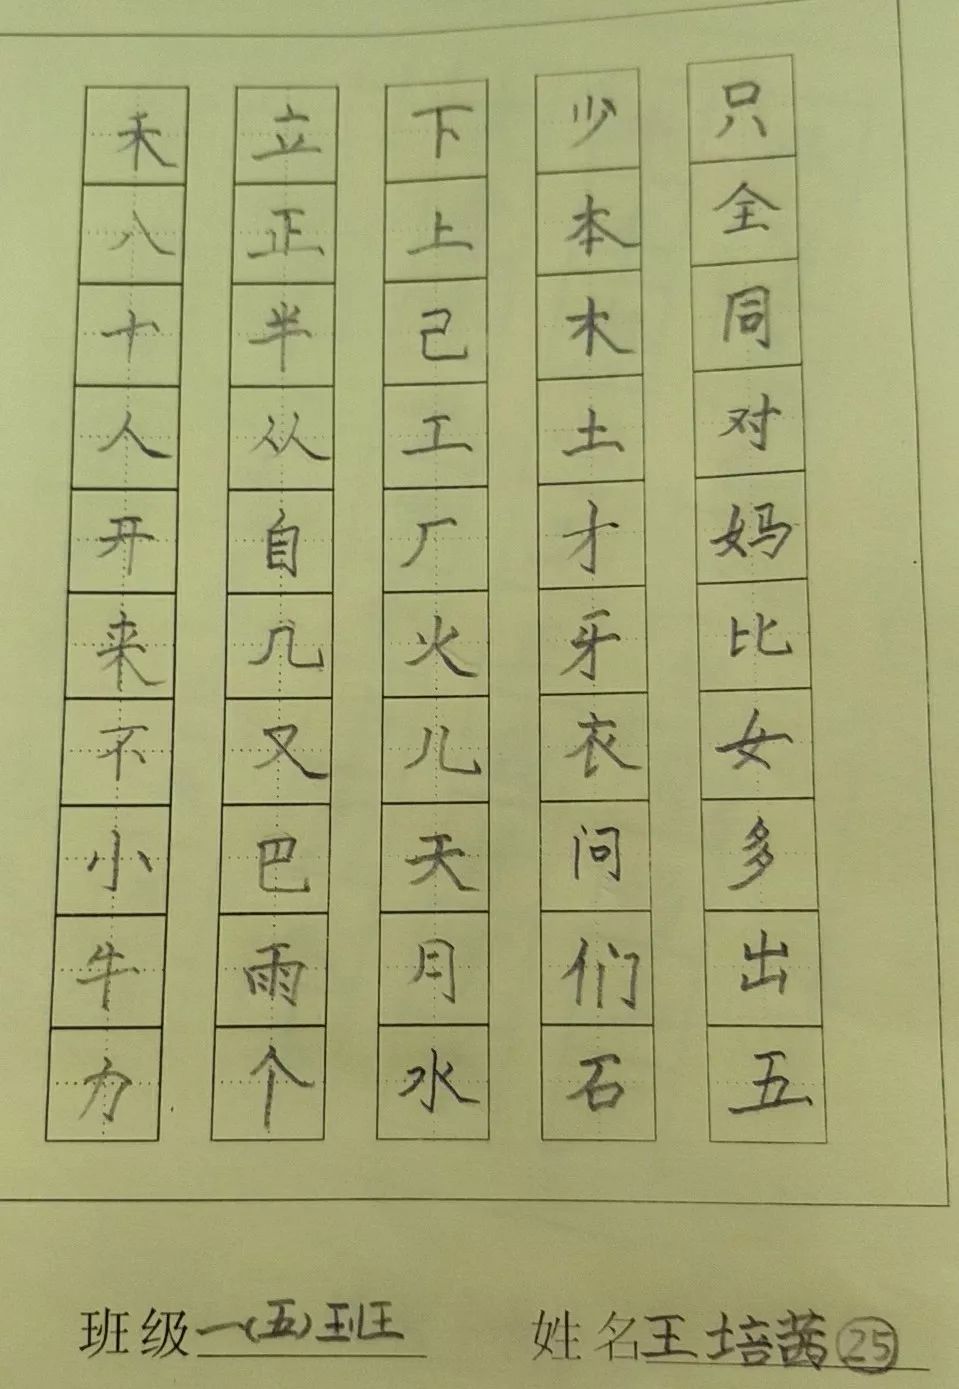 禾八十人开来不小牛力
立正半从自几又巴雨个
下上己工厂火儿天月水
少本木土才牙衣问们石
只全同对妈比女多出五
班级一(五)班
姓名王培茜 25